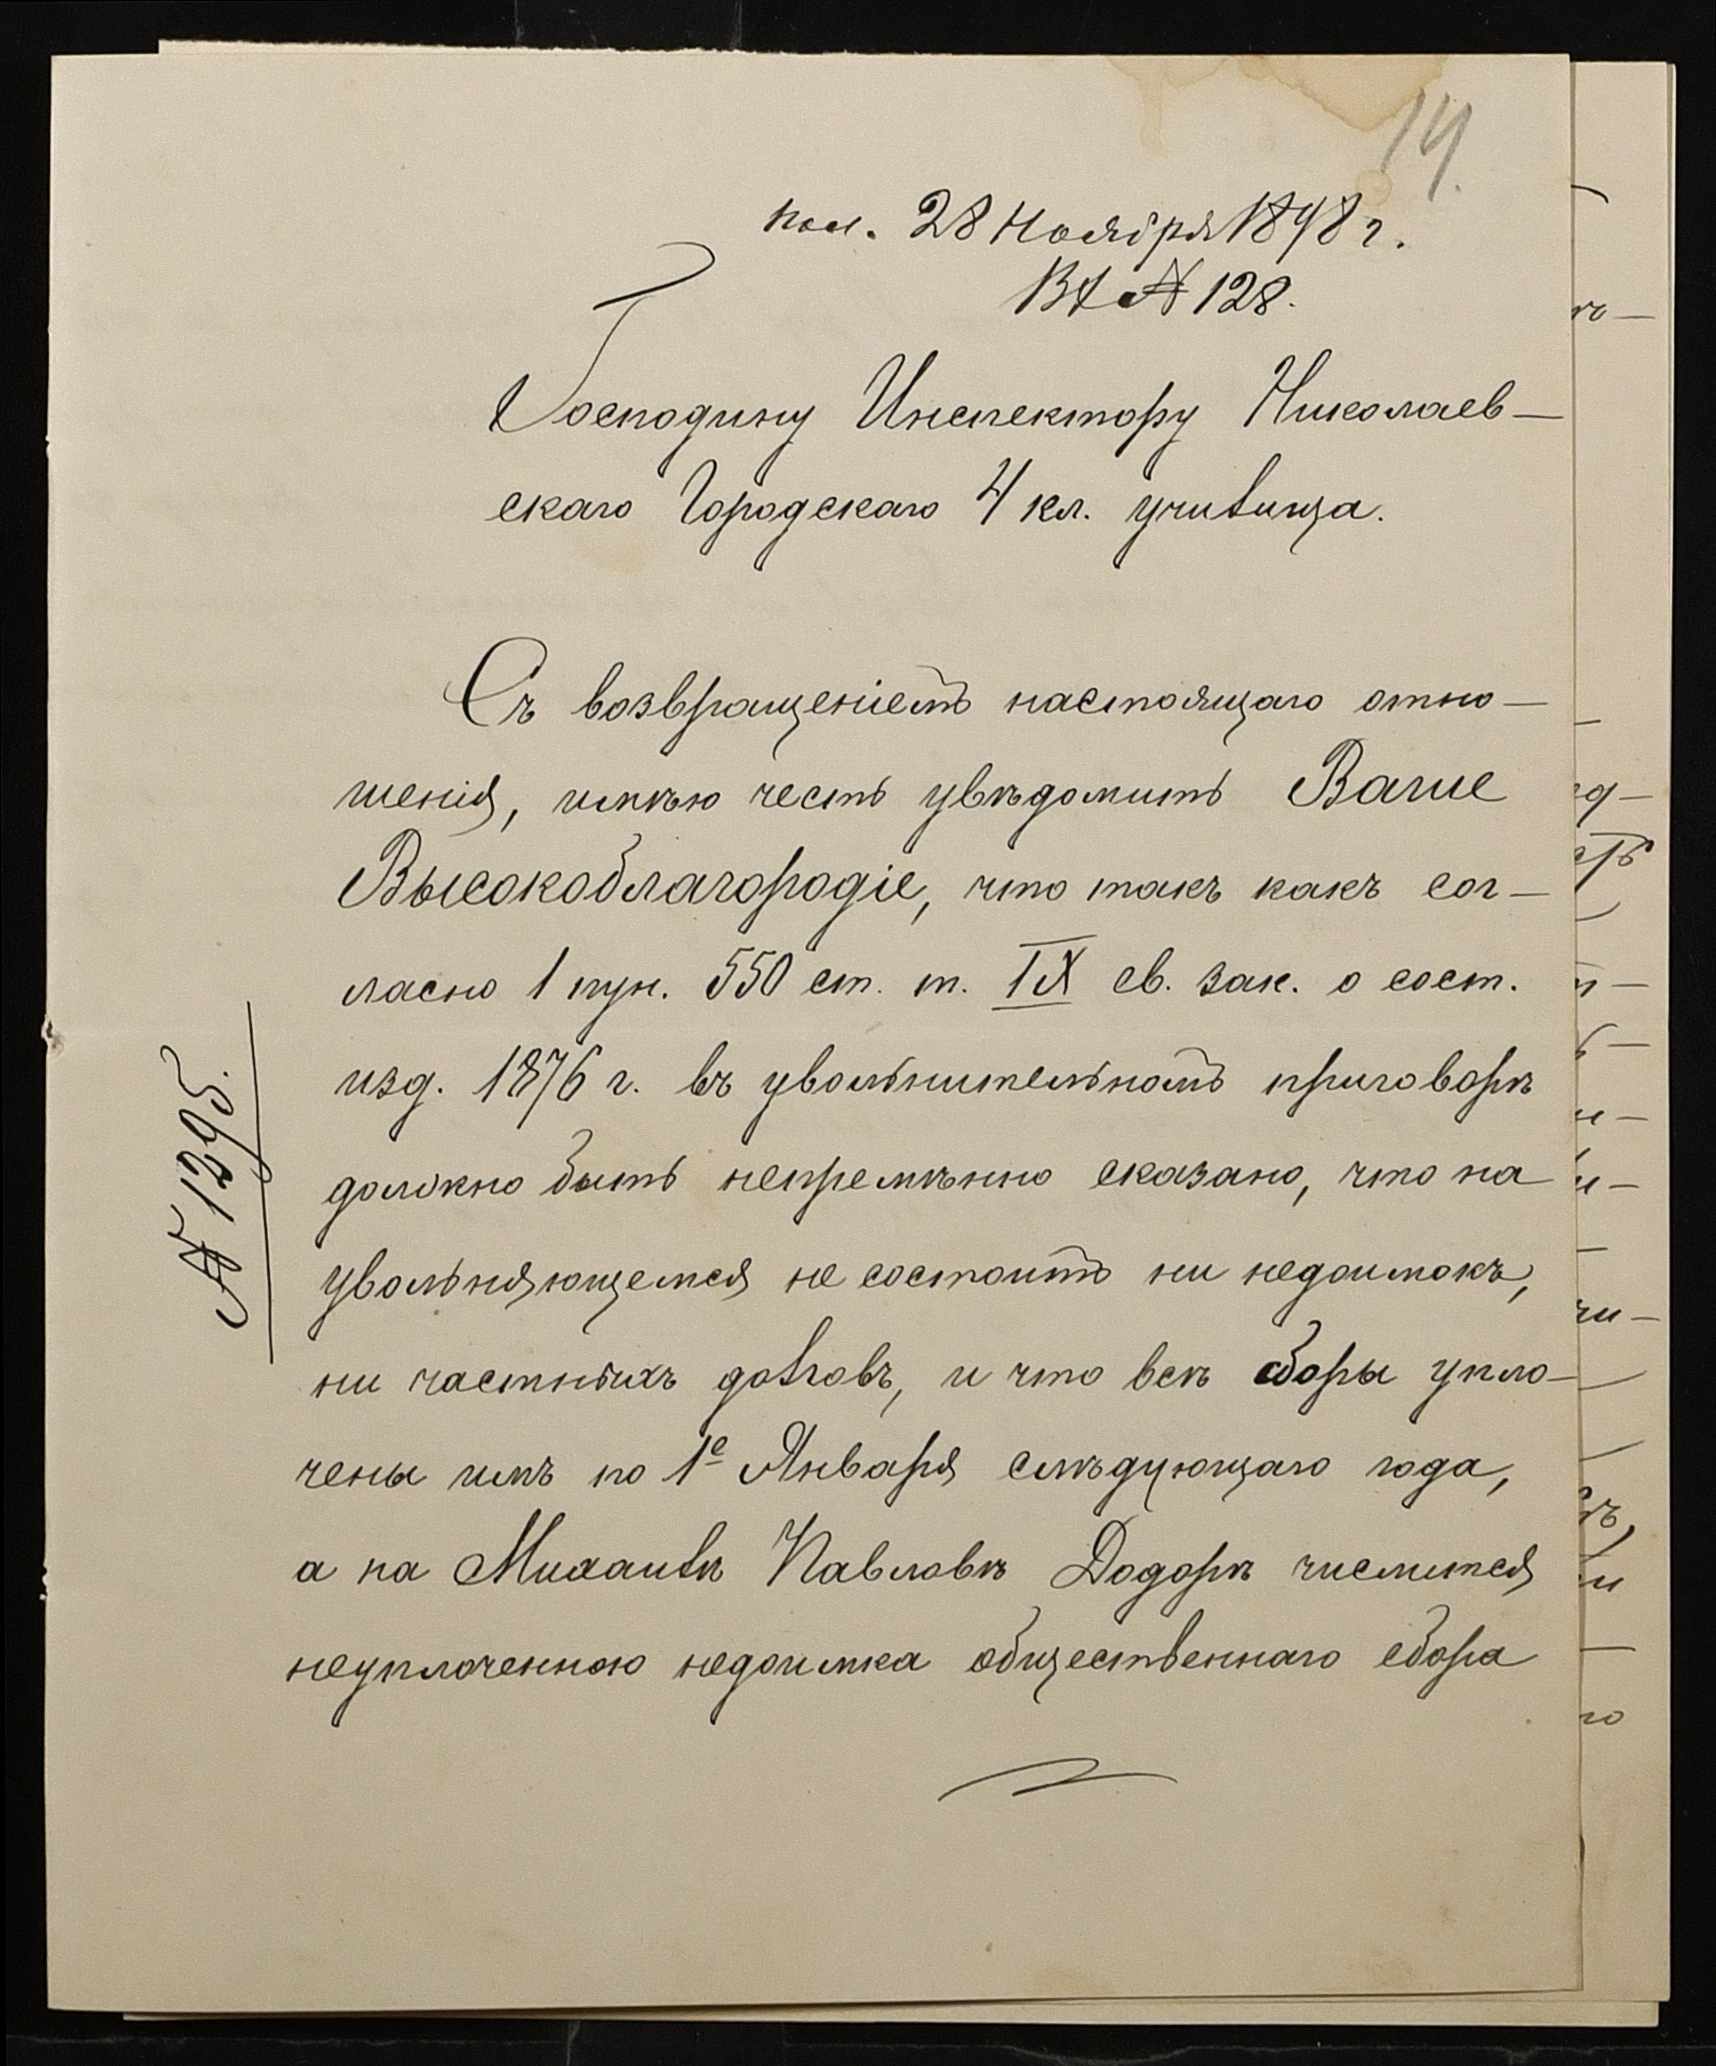 14.
пол. 28 Ноября 1898 г.
Вх № 128.
Господину Инспектору Николаев-
скаго Городскаго 4 кл. училища.
Съ возвращеніемъ настоящаго отно-
шенія, имѣю честь увѣдомить Ваше
Высокоблагородіе, что такъ какъ сог-
ласно 1 пун. 550 ст. т. IX св. зак. о сост.
изд. 1876 г. въ увольнительномъ приговорѣ
должно быть непремѣнно сказано, что на
увольняющемся не состоитъ ни недоимокъ,
ни частныхъ долговъ, и что всѣ сборы упло-
чены имъ по 1е Января слѣдующаго года,
а на Михаилѣ Павловѣ Додорѣ числится
неуплоченною недоимка общественнаго сбора
№ 1295.